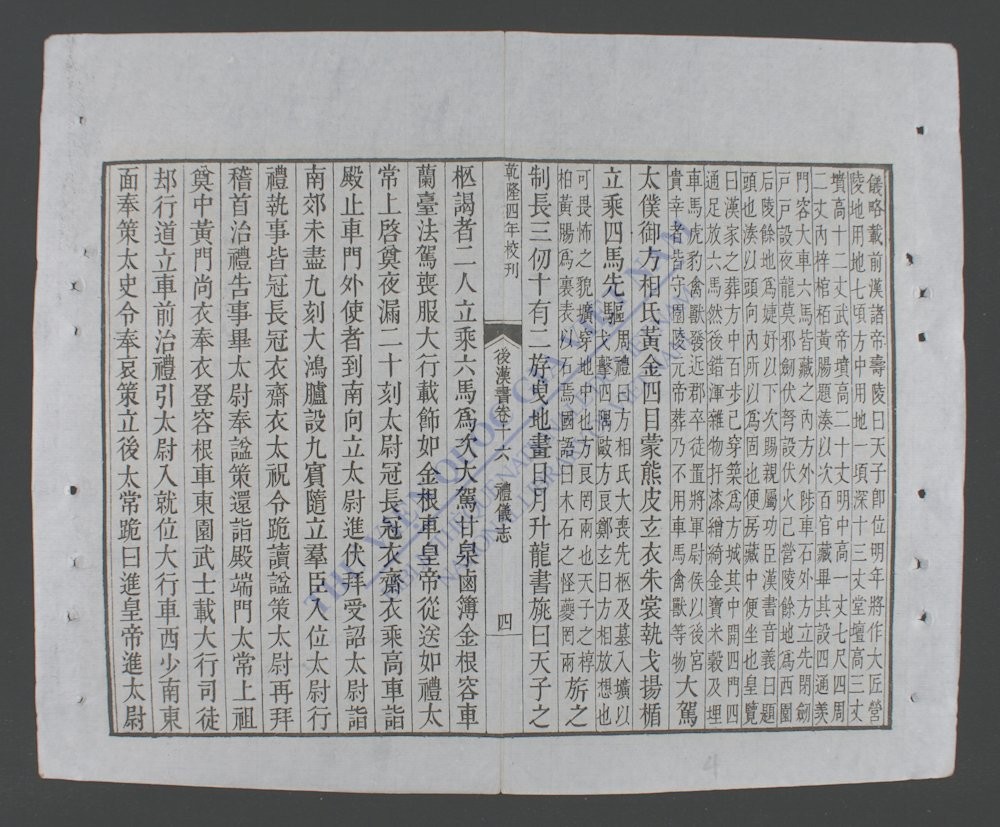 儀略載前漢諸帝壽陵曰天子卽位明年將作大匠營
陵地用地七頃方中用地一頃深十三丈堂壇高三丈
墳高十二丈武帝墳高二十丈明中高一丈七尺四周
二丈內梓棺栢黃腸題湊以次百官藏畢其設四通羨
門容大車六馬皆藏之內方外陟車石外方立先閉劍
戶戶設夜龍莫邪劍伏弩設伏火已營陵餘地爲西園
后陵餘地爲婕妤以下次賜親屬功臣漢書音義曰題
頭也湊以頭向內所以爲固也便房藏中便坐也皇覽
曰漢家之葬方中百步已穿築爲方城其中開四門四
通足放六馬然後錯渾雜物扞漆繒綺金寶米穀及埋
車馬虎豹禽獸發近郡卒徒置將軍尉候以後宮
貴幸者皆守園陵元帝葬乃不用車馬禽獸等物大駕
太僕御方相氏黃金四目蒙熊皮玄衣朱裳執戈揚楯
立乘四馬先驅周禮曰方相氏大喪先柩及墓入壙以
戈擊四隅敺方良鄭玄曰方相放想也
可畏怖之貌壙穿地中也方良罔兩也天子之椁
柏黃腸爲裏表以石焉國語曰木石之怪夔罔兩旂之
制長三仞十有二斿曳地畫日月升龍書旐曰天子之
乾隆四年校刊
後漢書卷十六 禮儀志 四
柩謁者二人立乘六馬爲次大駕甘泉鹵簿金根容車
蘭臺法駕喪服大行載飾如金根車皇帝從送如禮太
常上啓奠夜漏二十刻太尉冠長冠衣齋衣乘高車詣
殿止車門外使者到南向立太尉進伏拜受詔太尉詣
南郊未盡九刻大鴻臚設九賓隨立羣臣入位太尉行
禮執事皆冠長冠衣齋衣太祝令跪讀謚策太尉再拜
稽首治禮告事畢太尉奉謚策還詣殿端門太常上祖
奠中黃門尚衣奉衣登容根車東園武士載大行司徒
却行道立車前治禮引太尉入就位大行車西少南東
面奉策太史令奉哀策立後太常跪曰進皇帝進太尉
4